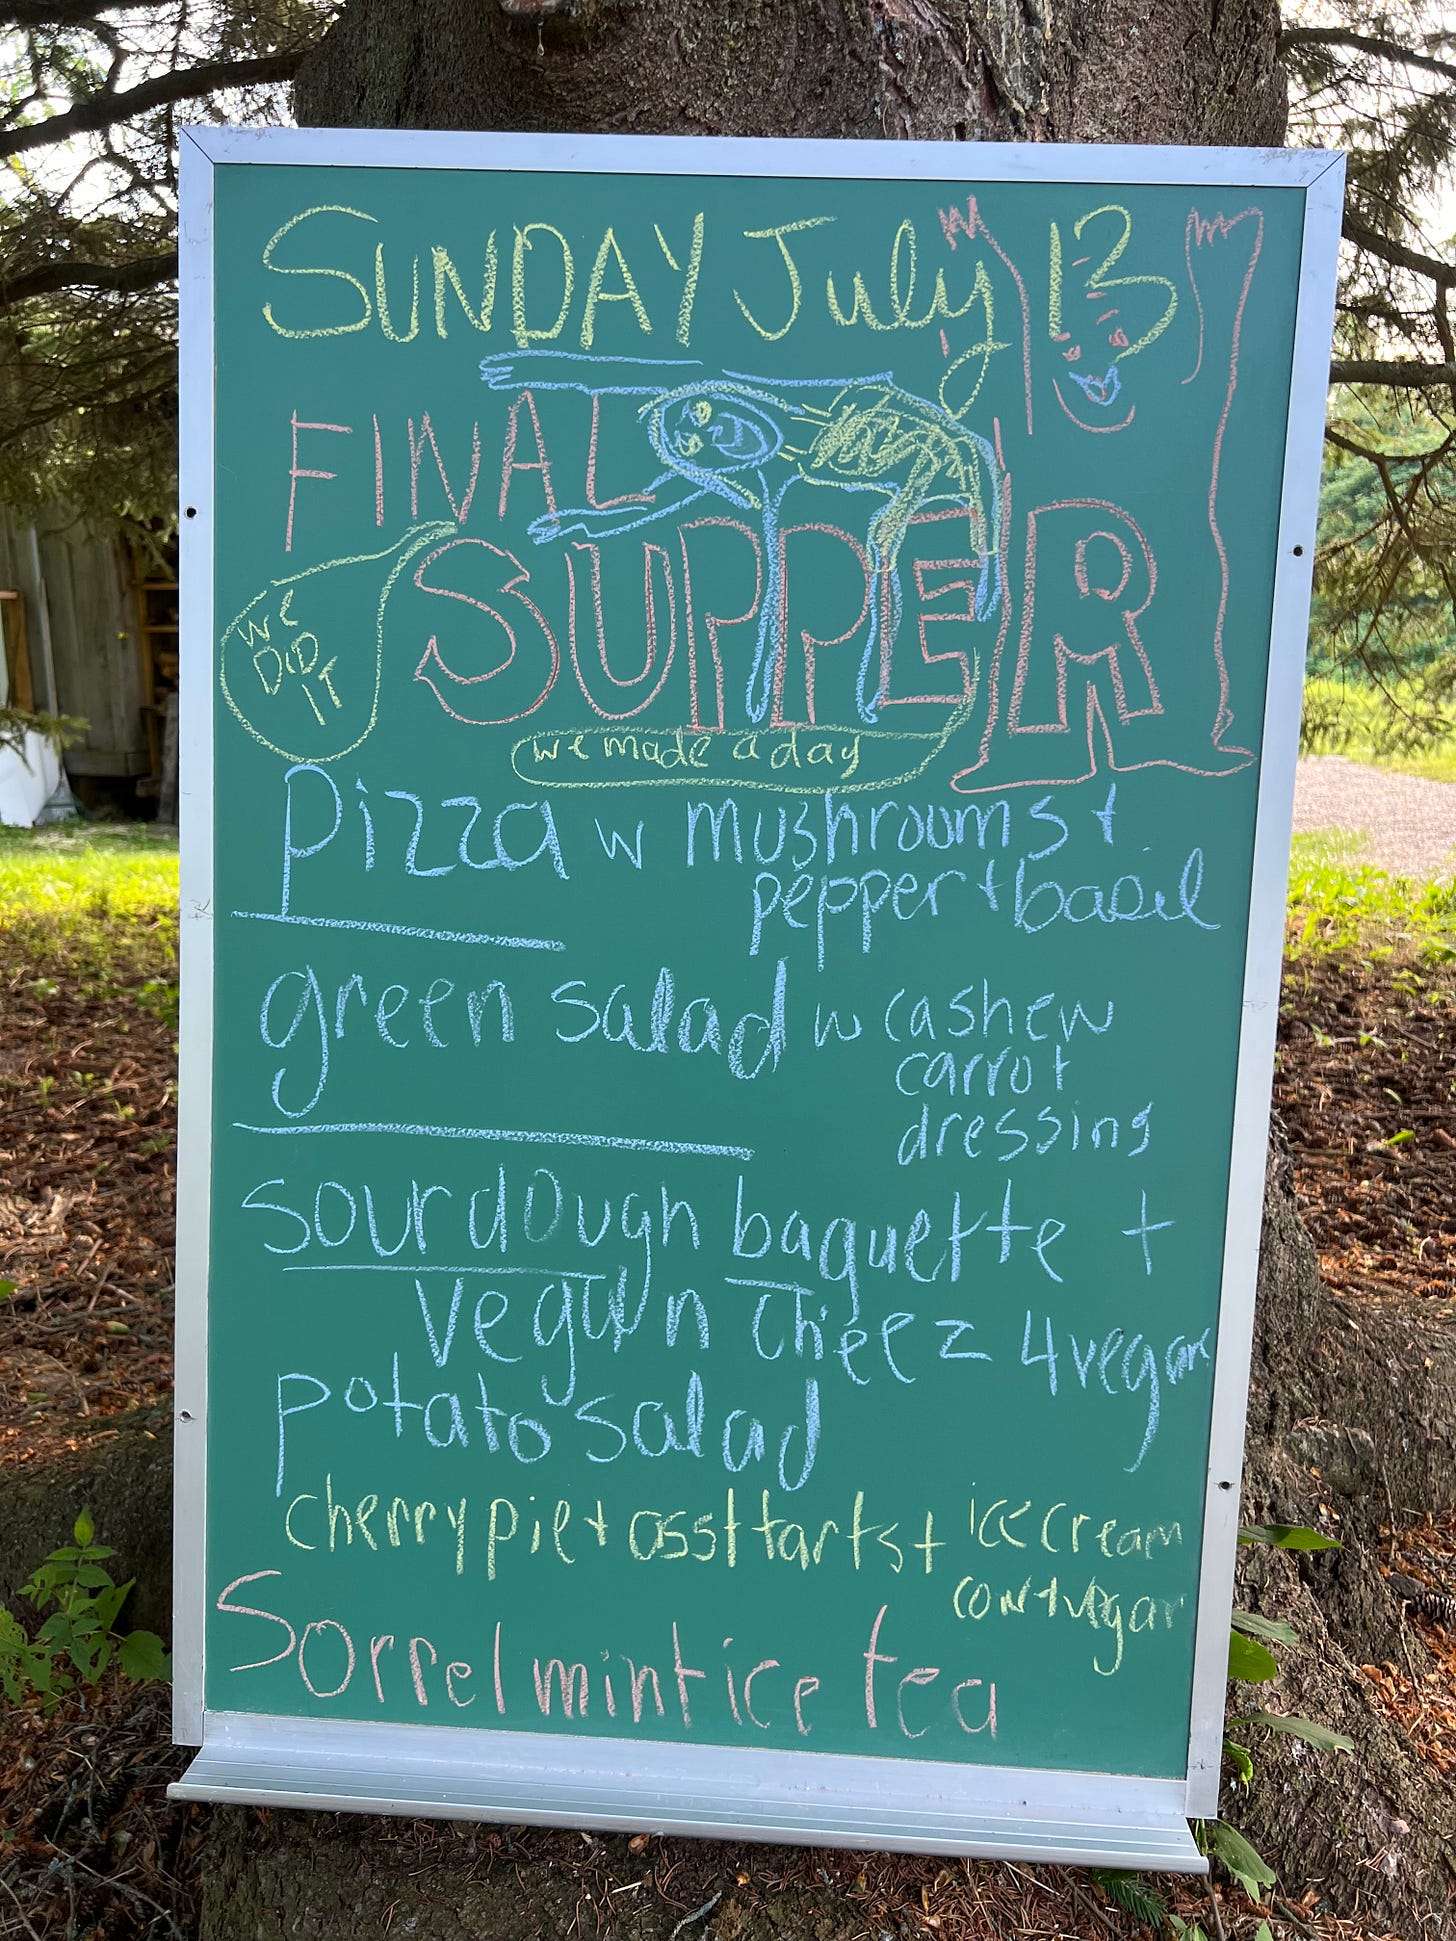 SUNDAY July 13
FINAL
SUPPER
WE
DID
IT
we made a day
Pizza w mushrooms +
pepper + basil
green salad w cashew
carrot
dressing
sourdough baguette +
vegan cheez 4 vegan
potato salad
cherry pie + asst tarts + ice cream
cow + vegan
Sorrel mint ice tea